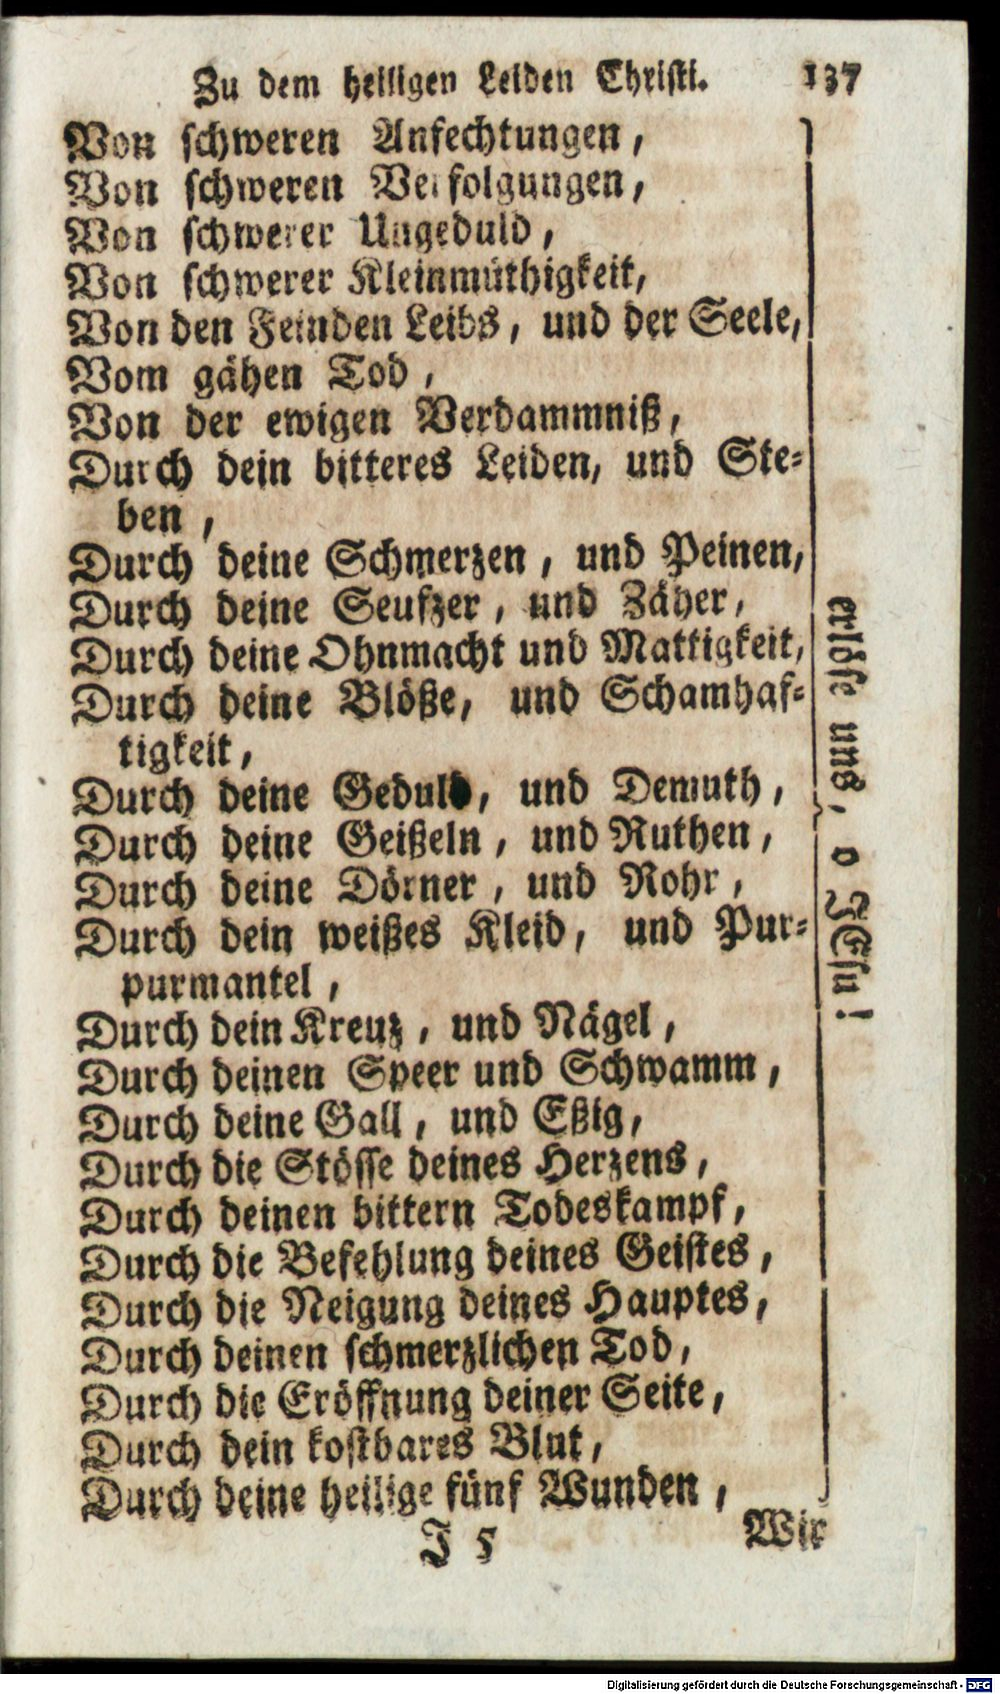 Zu dem heiligen Leiden Christi. 137
Von schweren Anfechtungen,
Von schweren Verfolgungen,
Von schwerer Ungeduld,
Von schwerer Kleinmüthigkeit,
Von den Feinden Leibs, und der Seele,
Vom gähen Tod,
Von der ewigen Verdammniß,
Durch dein bitteres Leiden, und Ste-
ben,
Durch deine Schmerzen, und Peinen,
Durch deine Seufzer, und Zäher,
Durch deine Ohnmacht und Mattigkeit,
Durch deine Blöße, und Schamhaf-
tigkeit,
Durch deine Geduld, und Demuth,
Durch deine Geißeln, und Ruthen,
Durch deine Dörner, und Rohr,
Durch dein weißes Kleid, und Pur-
purmantel,
Durch dein Kreuz, und Nägel,
Durch deinen Speer und Schwamm,
Durch deine Gall, und Eßig,
Durch die Stösse deines Herzens,
Durch deinen bittern Todeskampf,
Durch die Befehlung deines Geistes,
Durch die Neigung deines Hauptes,
Durch deinen schmerzlichen Tod,
Durch die Eröffnung deiner Seite,
Durch dein kostbares Blut,
Durch deine heilige fünf Wunden,
erlöse uns, o JEsu!
J 5 Wir
Digitalisierung gefördert durch die Deutsche Forschungsgemeinschaft - DFG